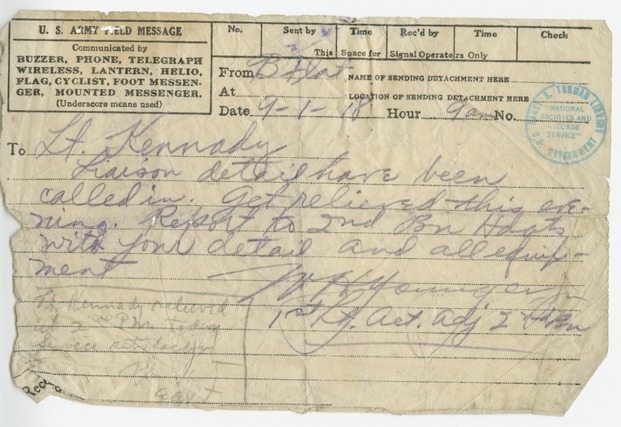 U. S. ARMY FIELD MESSAGE
Communicated by
BUZZER, PHONE, TELEGRAPH
WIRELESS, LANTERN, HELIO,
FLAG, CYCLIST, FOOT MESSEN-
GER, MOUNTED MESSENGER.
(Underscore means used)
No. Sent by Time Rec'd by Time Check
This Space for Signal Operators Only
From B Flat NAME OF SENDING DETACHMENT HERE
At LOCATION OF SENDING DETACHMENT HERE
Date 9-1-18 Hour 9am No.
HARRY S. TRUMAN LIBRARY
"NATIONAL
ARCHIVES AND
RECORDS
SERVICE"
U.S. GOVERNMENT
To Lt. Kennady
Liaison detail have been
called in. Get relieved this eve-
ning. Report to 2nd Bn Hdqts
with your detail and all equip-
ment
Younger
1st Lt. Act. Adj 2nd Bn
Lt Kennady relieved
at 2 PM today
Service satisfactory
Rec